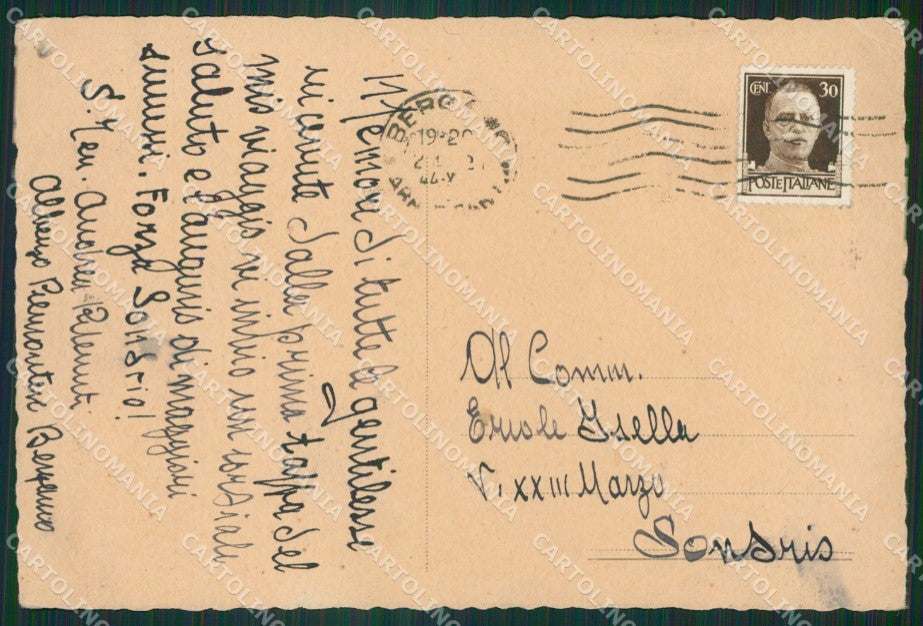 Memore di tutte le gentilesse
ricevute dalla prima tappa del
mio viaggio vi invio un cordiale
saluto e l'augurio di maggiori
Forza Sondrio!
S. Ten. Andrea
Albergo Piemontese Bergamo
BERGA
19-20
CENT. 30
POSTE ITALIANE
Al Comm.
Ercole Ysella
V. XXIII Marzo
Sondrio
CARTOLINOMANIA